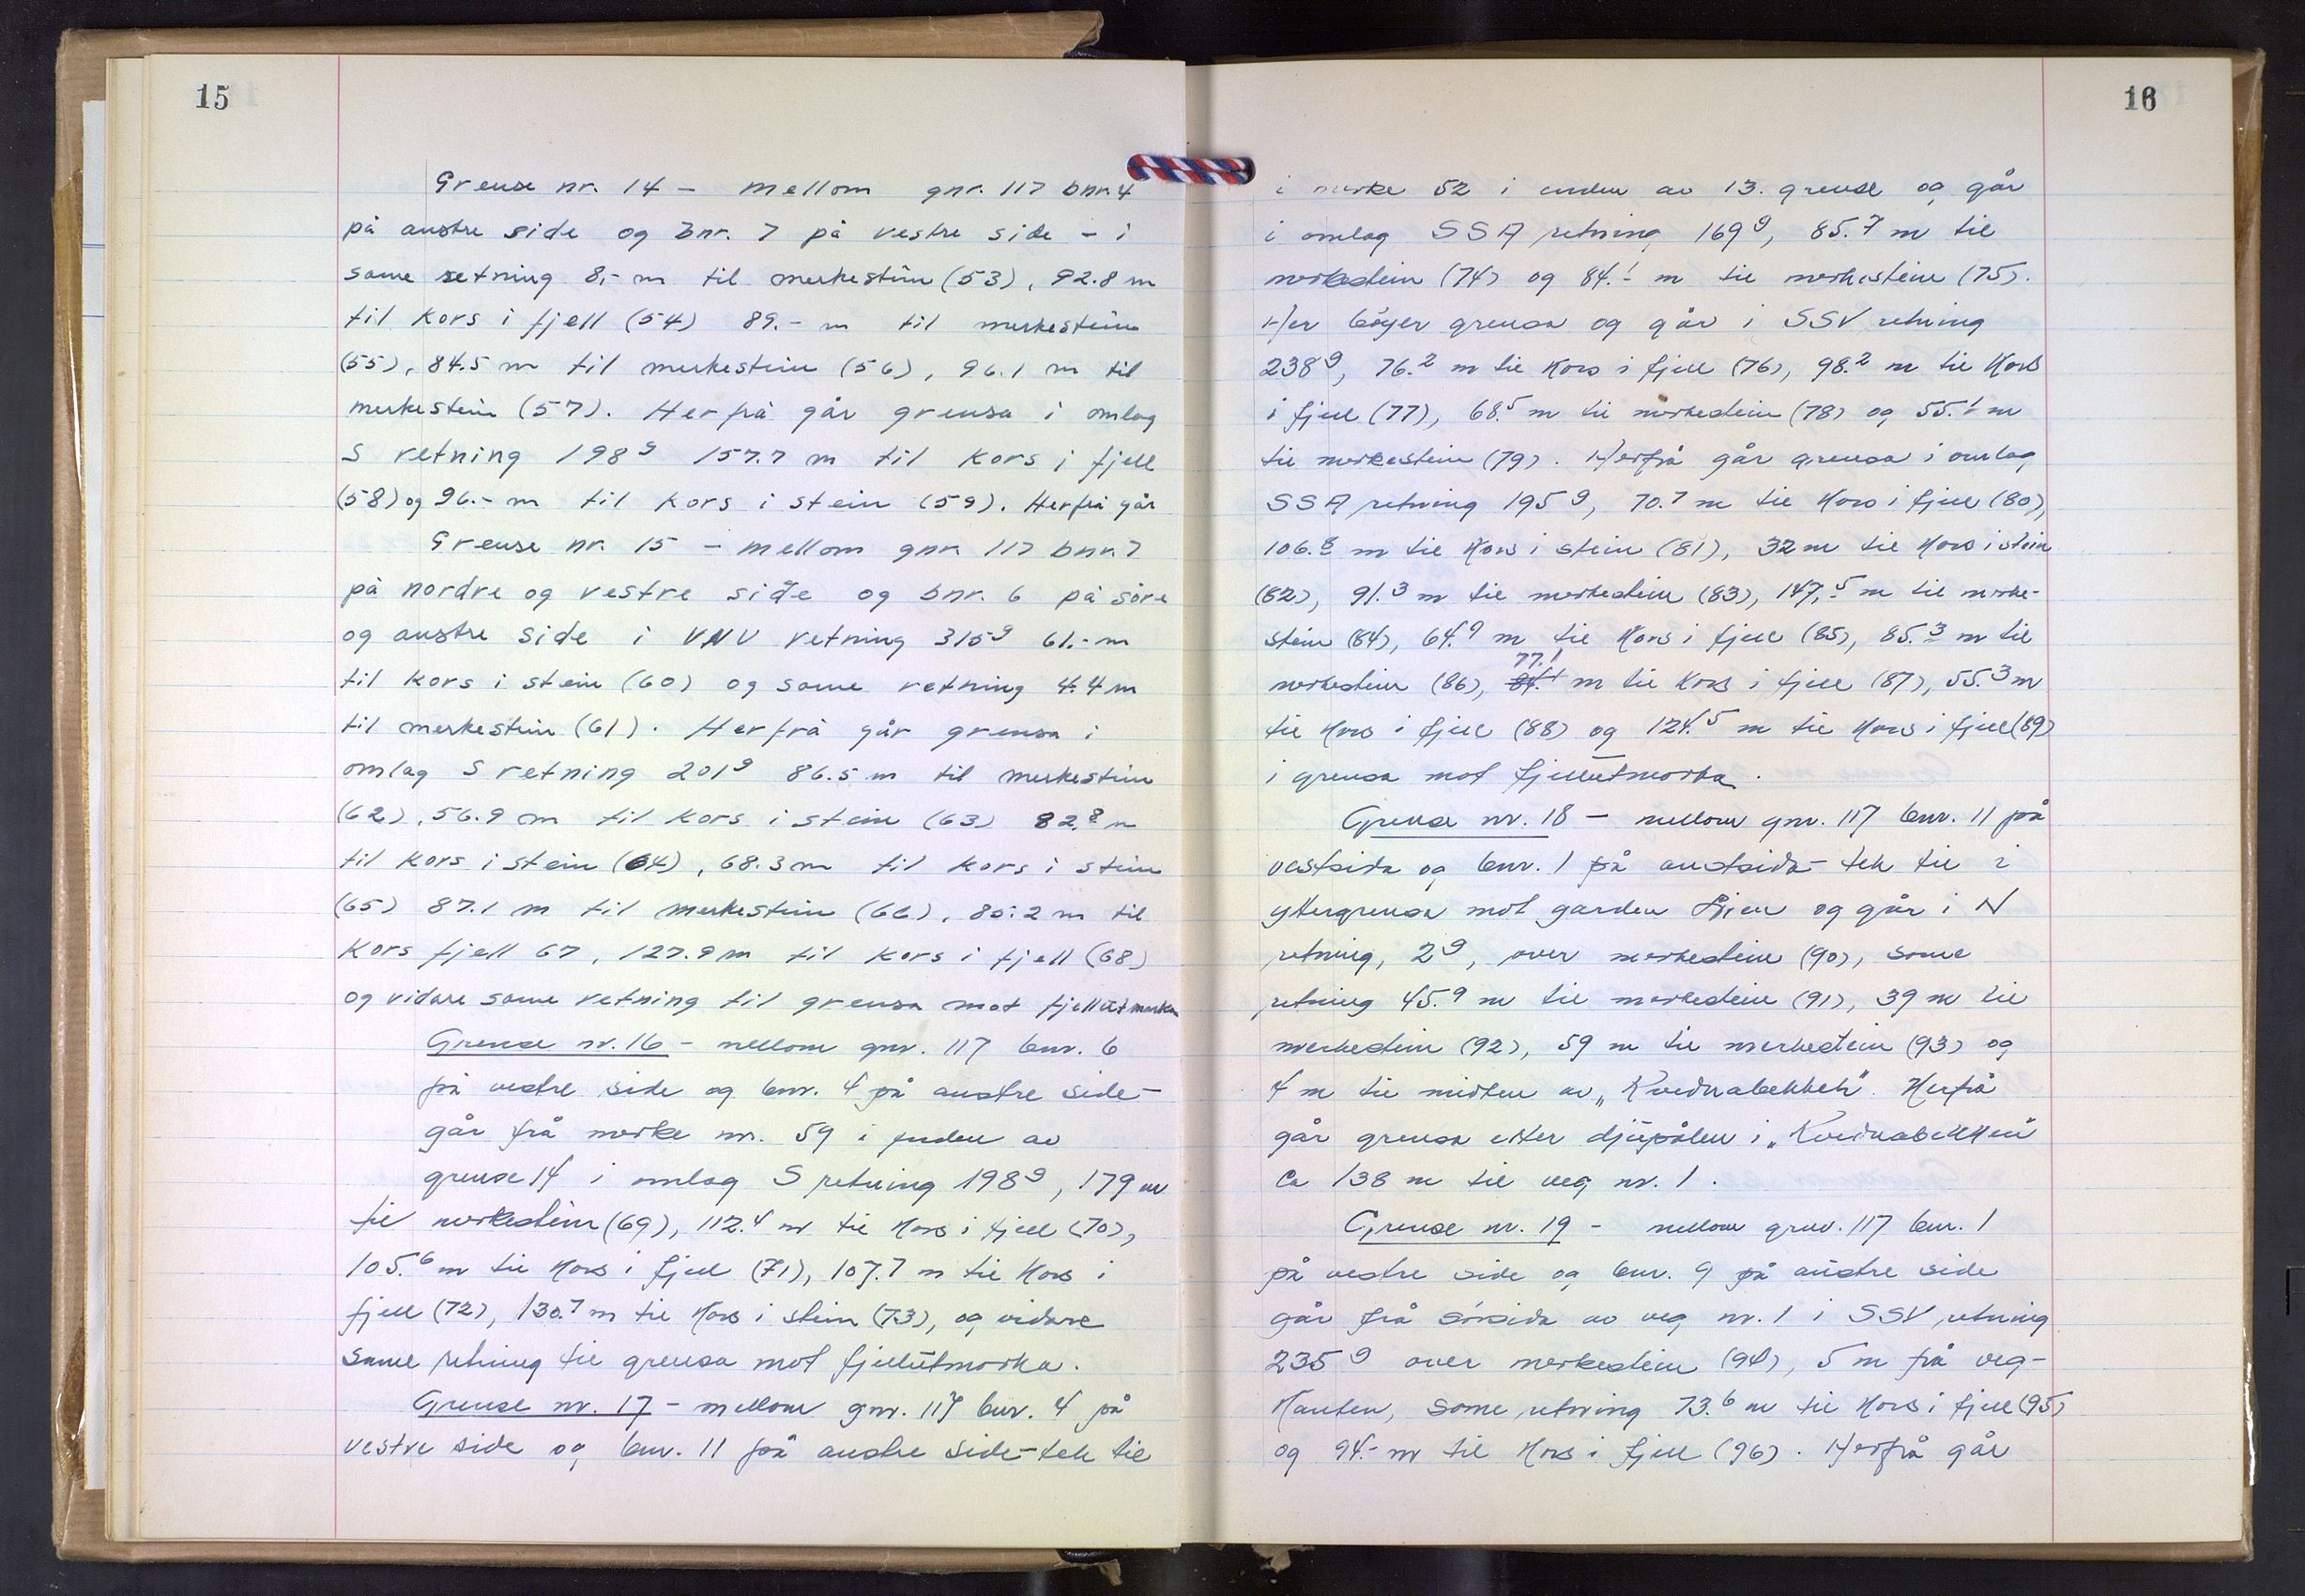 15
Grense nr. 14 - mellom gnr. 117 bnr. 4
på austre side og bnr. 7 på vestre side - i
same retning 8,- m til merkestein (53), 92.8 m
til kors i fjell (54) 89.- m til merkestein
(55), 84.5 m til merkestein (56), 96.1 m til
merkestein (57). Herfrå går grensa i omlag
S retning 198g 157.7 m til kors i fjell
(58) og 96.- m til kors i stein (59). Herfrå går
Grense nr. 15 - mellom gnr. 117 bnr. 7
på nordre og vestre side og bnr. 6 på søre
og austre side i VNV retning 315g 61.- m
til kors i stein (60) og same retning 4.4 m
til merkestein (61). Herfrå går grensa i
omlag S retning 201g 86.5 m til merkestein
(62), 56.9 m til kors i stein (63) 82.8 m
til kors i stein (64), 68.3 m til kors i stein
(65) 87.1 m til merkestein (66), 85.2 m til
kors fjell 67, 127.9 m til kors i fjell (68)
og vidare same retning til grensa mot fjellutmarka
Grense nr. 16 - mellom gnr. 117 bnr. 6
på vestre side og bnr. 4 på austre side -
går frå merke nr. 59 i enden av
grense 14 i omlag S retning 198g, 179 m
til merkestein (69), 112.4 m til kors i fjell (70),
105.6 m til kors i fjell (71), 107.7 m til kors i
fjell (72), 130.7 m til kors i stein (73), og vidare
same retning til grensa mot fjellutmarka.
Grense nr. 17 - mellom gnr. 117 bnr. 4 på
vestre side og bnr. 11 på austre side - tek til
16
i merke 52 i enden av 13. grense og går
i omlag SSA retning 169g, 85.7 m til
merkestein (74) og 84.1 m til merkestein (75).
Her bøyer grensa og går i SSV retning
238g, 76.2 m til kors i fjell (76), 98.2 m til kors
i fjell (77), 68.5 m til merkestein (78) og 55.1 m
til merkestein (79). Herfrå går grensa i omlag
SSA retning 195g, 70.7 m til kors i fjell (80),
106.8 m til kors i stein (81), 32 m til kors i stein
(82), 91.3 m til merkestein (83), 147.5 m til merke-
stein (84), 64.9 m til kors i fjell (85), 85.3 m til
77.1
merkestein (86), m til kors i fjell (87), 55.3 m
til kors i fjell (88) og 124.5 m til kors i fjell (89)
i grensa mot fjellutmarka.
Grense nr. 18 - mellom gnr. 117 bnr. 11 på
vestsida og bnr. 1 på austsida - tek til i
yttergrensa mot garden og går i N
retning, 2g, over merkestein (90), same
retning 45.9 m til merkestein (91), 39 m til
merkestein (92), 59 m til merkestein (93) og
4 m til midten av "Kvednabekken". Herfrå
går grensa etter djupålen i "Kvednabekken"
ca 138 m til veg nr. 1.
Grense nr. 19 - mellom gnr. 117 bnr. 1
på vestre side og bnr. 9 på austre side
går frå sørsida av veg nr. 1 i SSV retning
235g over merkestein (94), 5 m frå veg-
kanten, same retning 73.6 m til kors i fjell (95)
og 94.- m til kors i fjell (96). Herfrå går